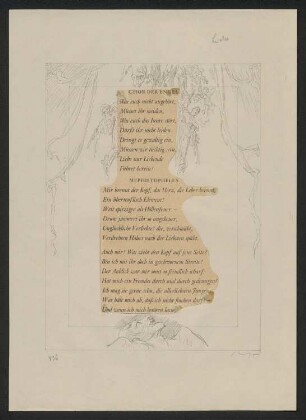 CHOR DER ENGEL
Was euch nicht angehört,
Müsset ihr meiden,
Was euch das Innre stört,
Dürft ihr nicht leiden.
Dringt es gewaltig ein,
Müssen wir tüchtig sein.
Liebe nur Liebende
Führet herein!
MEPHISTOPHELES
Mir brennt der Kopf, das Herz, die Leber brennt,
Ein überteuflisch Element!
Weit spitziger als Höllenfeuer —
Drum jammert ihr so ungeheuer,
Unglückliche Verliebte! die, verschmäht,
Verdrehten Halses nach der Liebsten späht.
Auch mir! Was zieht den Kopf auf jene Seite?
Bin ich mit ihr doch in geschwornem Streite!
Der Anblick war mir sonst so feindlich scharf.
Hat mich ein Fremdes durch und durch gedrungen?
Ich mag sie gerne sehn, die allerliebsten Jungen;
Was hält mich ab, daß ich nicht fluchen darf? —
Und wenn ich mich betören lasse,